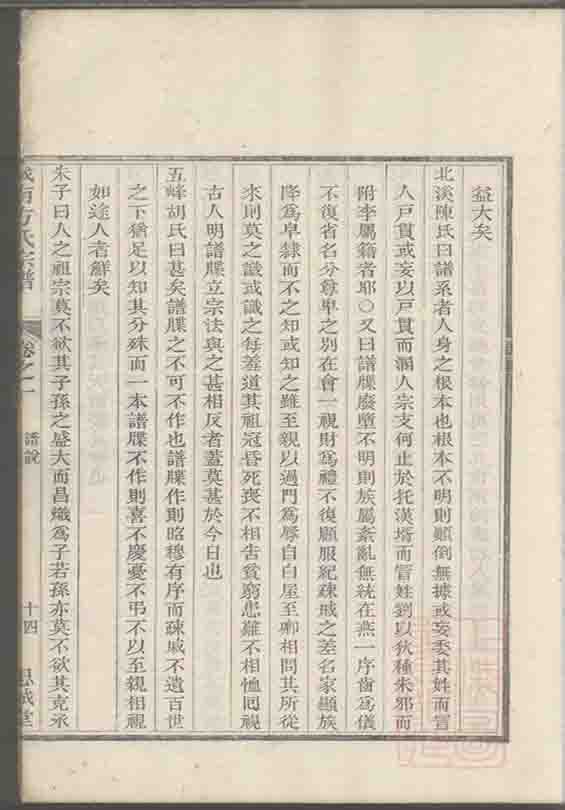 益大矣
北溪陳氏曰譜系者人身之根本也根本不明則顚倒無據或妄委其姓而冒
人戸貫或妄以戸貫而溷人宗支何止於托漢壻而冒姓劉以狄種朱邪而
附李屬籍者耶○又曰譜牒廢墮不明則族屬紊亂無統在燕一序齒爲儀
不復省名分尊卑之別在會一視財爲禮不復顧服紀疎戚之差名家顯族
降爲皁隸而不之知或知之雖至親以過門爲辱自白屋至卿相問其所從
來則莫之識或識之每羞道其祖冠昏死喪不相告貧窮患難不相恤囘視
古人明譜牒立宗法與之甚相反者蓋莫甚於今日也
五峰胡氏曰甚矣譜牒之不可不作也譜牒作則昭穆有序而疎戚不遺百世
之下猶足以知其分殊而一本譜牒不作則喜不慶憂不弔不以至親相視
如途人者鮮矣
朱子曰人之祖宗莫不欲其子孫之盛大而昌熾爲子若孫亦莫不欲其克承
南方氏宗譜
卷之一
譜說
十四
思誠堂